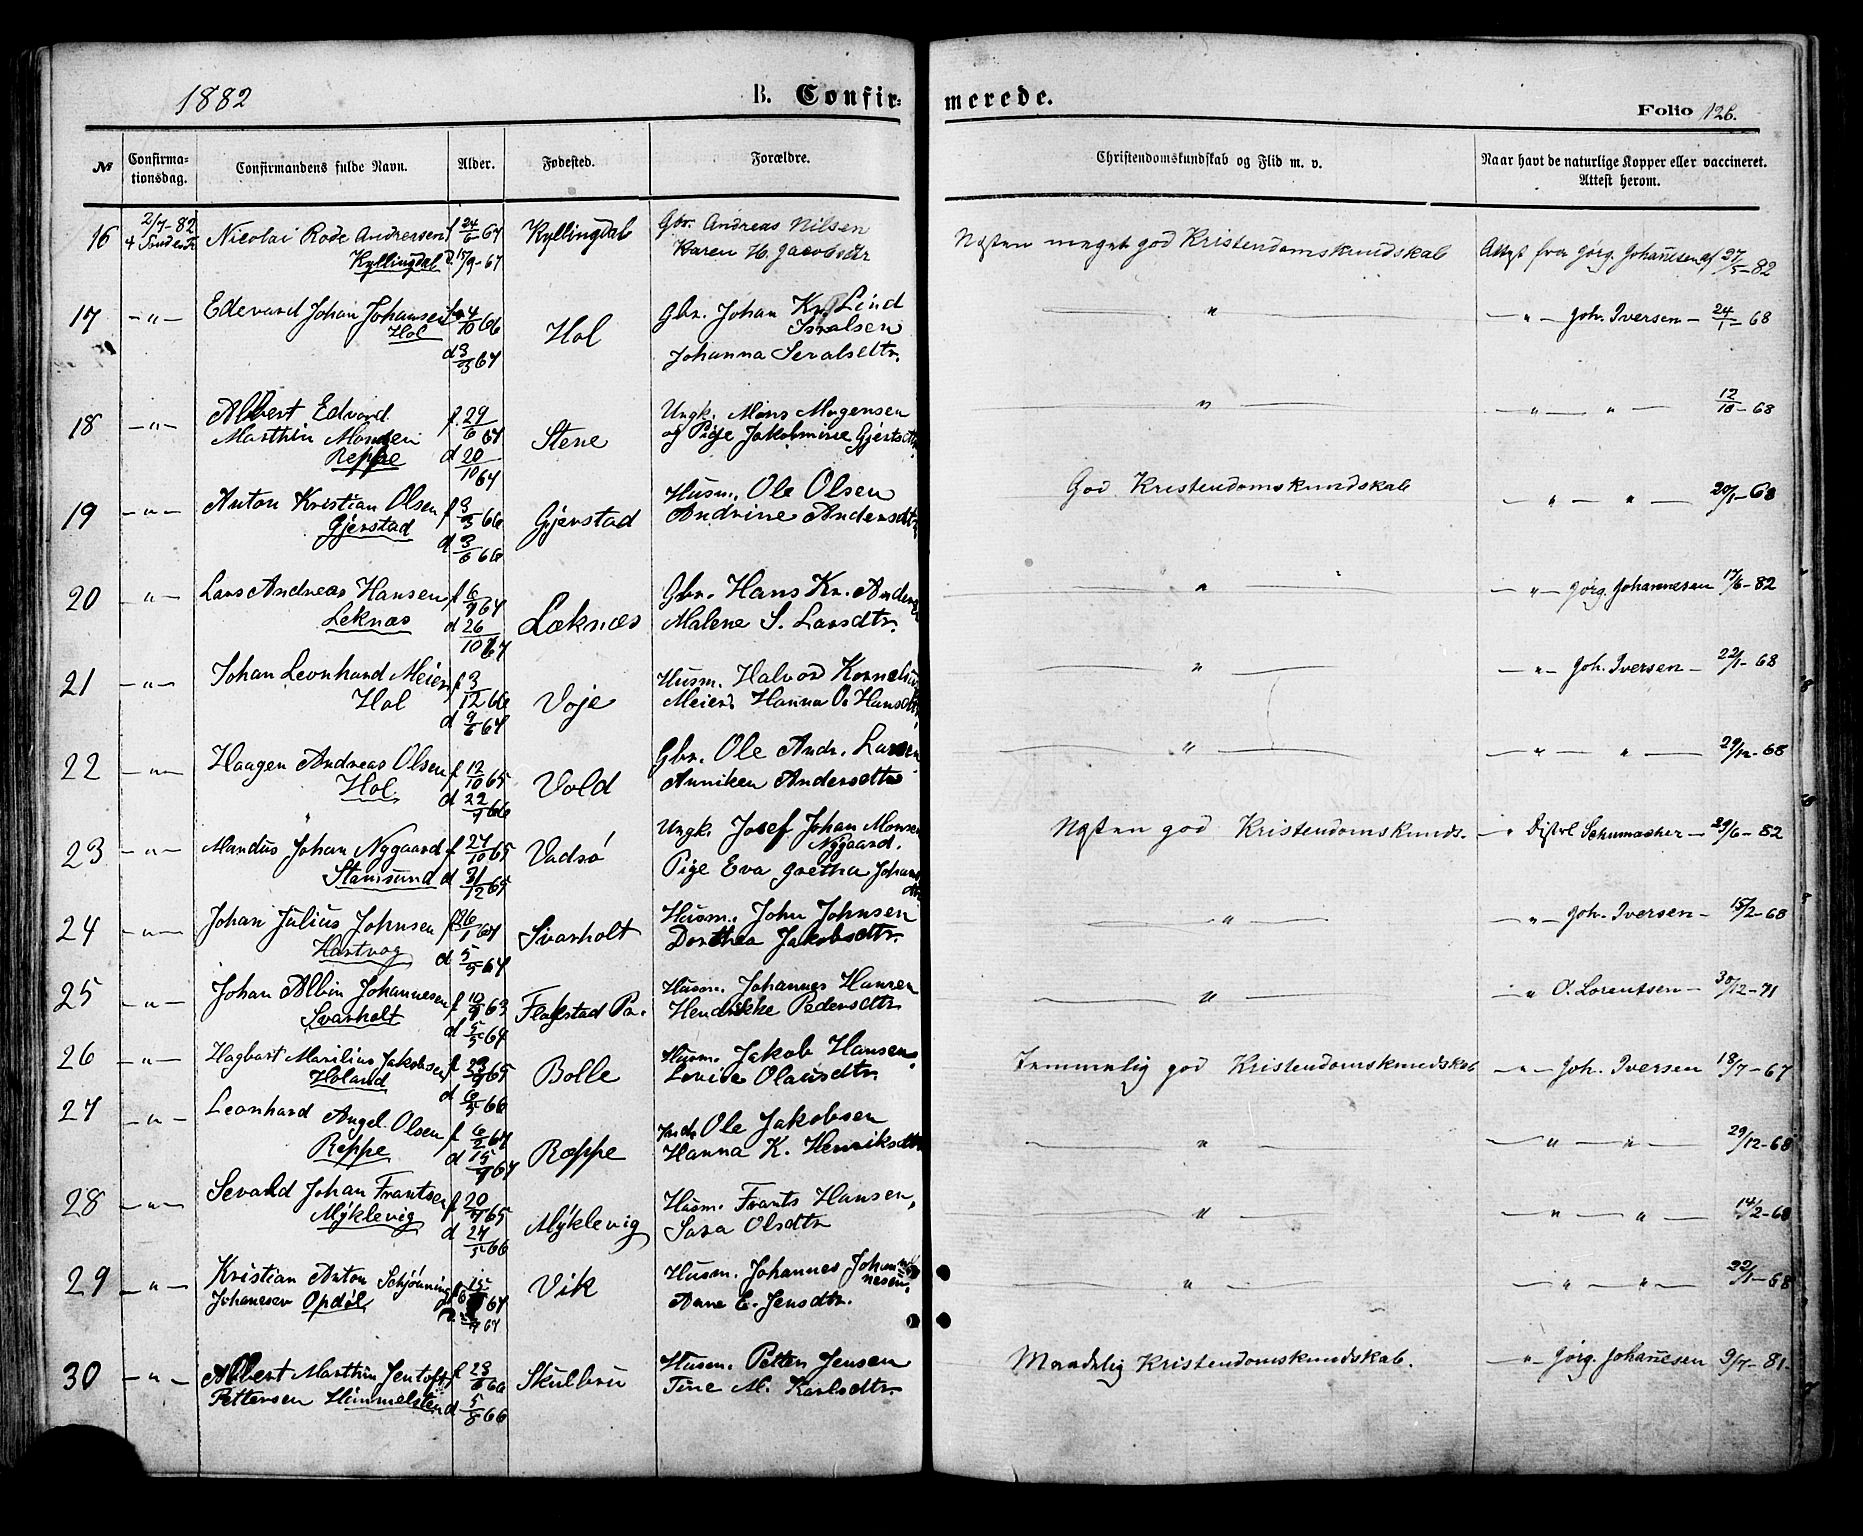 1882 B. Confir- merede. Folio 126.
№ Confirmationsdag. Confirmandens fulde Navn. Alder. Fødested. Forældre. Christendomskundskab og Flid m. v. Naar havt de naturlige Kopper eller vaccineret. Attest herom.
16 2/7-82 Nicolai Rode Andreasen f 24/6 67 Kyllingdal Gbr. Andreas Nilsen Næsten meget god Kristendomskundskab Attest fra Jørg. Johannesen af 27/5-82
4 S. e. Kyllingdal D. 15/9-67 Karen H. Jacobsdtr
17 -„- Edevard Johan Johansen f 4/10 66 Hol Gbr. Johan Kr. Lind „ -„- Joh. Iversen - 24/1-68
Hol Israelsen
d 3/3 67 Johanna Sevalsdtr.
18 -„- Albert Edvard f. 29/6 67 Stene Ungk. Mons Mogensen „ „ „ 12/10-68
Marthin Monsen og Pige Jakobmine Gjertsdtr
Reppe d 20/10 67
19 -„- Anton Kristian Olsen f 3/3 66 Gjerstad Husm. Ole Olsen God Kristendomskundskab „ „ 20/1-68
Gjerstad d 3/6 66 Andrine Andersdtr
20 -„- Lars Andreas Hansen f 6/9 67 Læknæs Gbr. Hans Kr. Anders „ -„- Jørg. Johannesen 17/6-82
Leknæs d 26/10 67 Malene S. Larsdtr.
21 -„- Johan Leonhard Meier f 3/12 66 Voje Husm. Halvor Kornelius „ -„- Joh. Iversen - 22/1-68
Hol d 9/6 67 Meier, Hanna O. Hansdtr
22 -„- Haagen Andreas Olsen f 12/10 65 Vold Gbr. Ole Andr. Larsen „ „ „ 29/12-68
Hol d 22/7 66 Anniken Andersdtr
23 -„- Mandus Johan Nygaard f 27/10 65 Vadsø Ungk. Josef Johan Monsen Næsten god Kristendomskunds. -„ Distrl Schumacher - 29/6-82
Nygaard.
Stamsund d 31/12 65 Pige Eva Gretha Johansdtr
24 -„- Johan Julius Johnsen f 26/1 67 Svarholt Husm. John Johnsen „ „ Joh. Iversen - 15/2-68
Hartvog d 5/5 67 Dorthea Jakobsdtr.
25 -„- Johan Albin Johannesen f 10/9 63 Flagstad Pr. Husm. Johannes Hansen „ „ O. Lorentsen - 30/12-71
Svarholt d 5/5 64 Hendrikke Pedersdtr
26 -„- Hagbart Marilius Jakobsen f 29/9 65 Bolle Husm. Jakob Hansen, Temmelig god Kristendomskundskab -„- Joh. Iversen 18/7-67
Holand d 6/5 66 Lovise Olausdtr.
27 -„- Leonhard Angel Olsen f 6/2 67 Ræppe Ole Jakobsen „ „ „ 29/12-68
Reppe d 15/9 67 Hanna K. Henriksdtr
28 -„- Sevald Johan Frantsen f 20/9 65 Mÿklevig Husm. Frants Hansen, „ „ „ 14/2-68
Mÿklevig d 27/5 66 Sara Olsdtr
29 -„- Kristian Anton Schjønning f 15/ 67 Vik Husm. Johannes Johannesen, „ „ „ 22/1-68
Johanesen Opdøl Anne E. Jensdtr.
30 -„- Albert Marthin Jentoft f 23/6 60 Skulbru Husm. Petter Jensen Maadelig Kristendomskundskab. -„- Jørg. Johannesen 9/7-81
Pettersen Himmelsten d 5/8 66 Tine M. Karlsdtr.